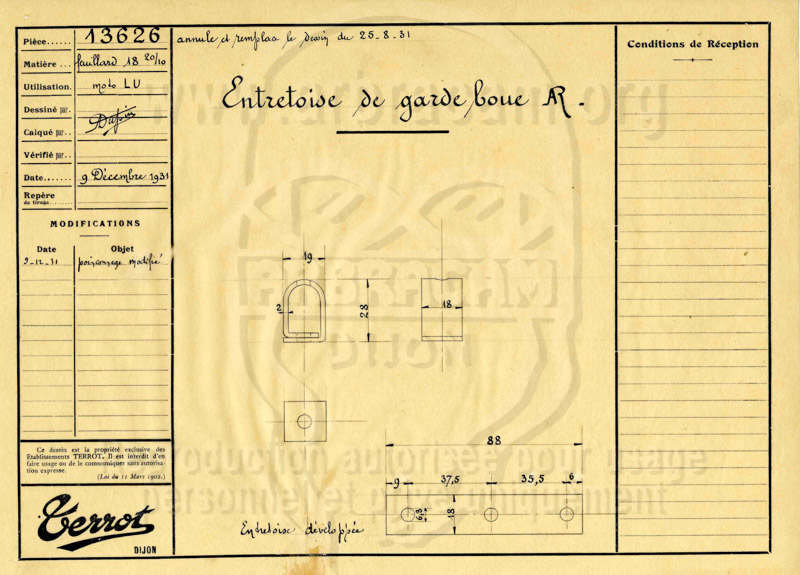 Pièce...... 13626
annule et remplace le dessin du 25-8-31
Matière... feuillard 18 20/10
Utilisation. moto LU
Dessiné par.
Calqué par..
Vérifié par..
Date....... 9 Décembre 1931
Repère
de tirage
MODIFICATIONS
Date Objet
9-12-31 poinçonnage modifié
Entretoise de garde boue AR.
Conditions de Réception
19
2
28
18
88
9 37,5 35,5 6
6,3
18
Entretoise développée
Ce dessin est la propriété exclusive des
Etablissements TERROT. Il est interdit d'en
faire usage ou de le communiquer sans autorisa-
tion expresse.
(Loi du 11 Mars 1902.)
Terrot
DIJON
ABRACAM
DIJON
Reproduction autorisée pour usage
personnel et privé uniquement